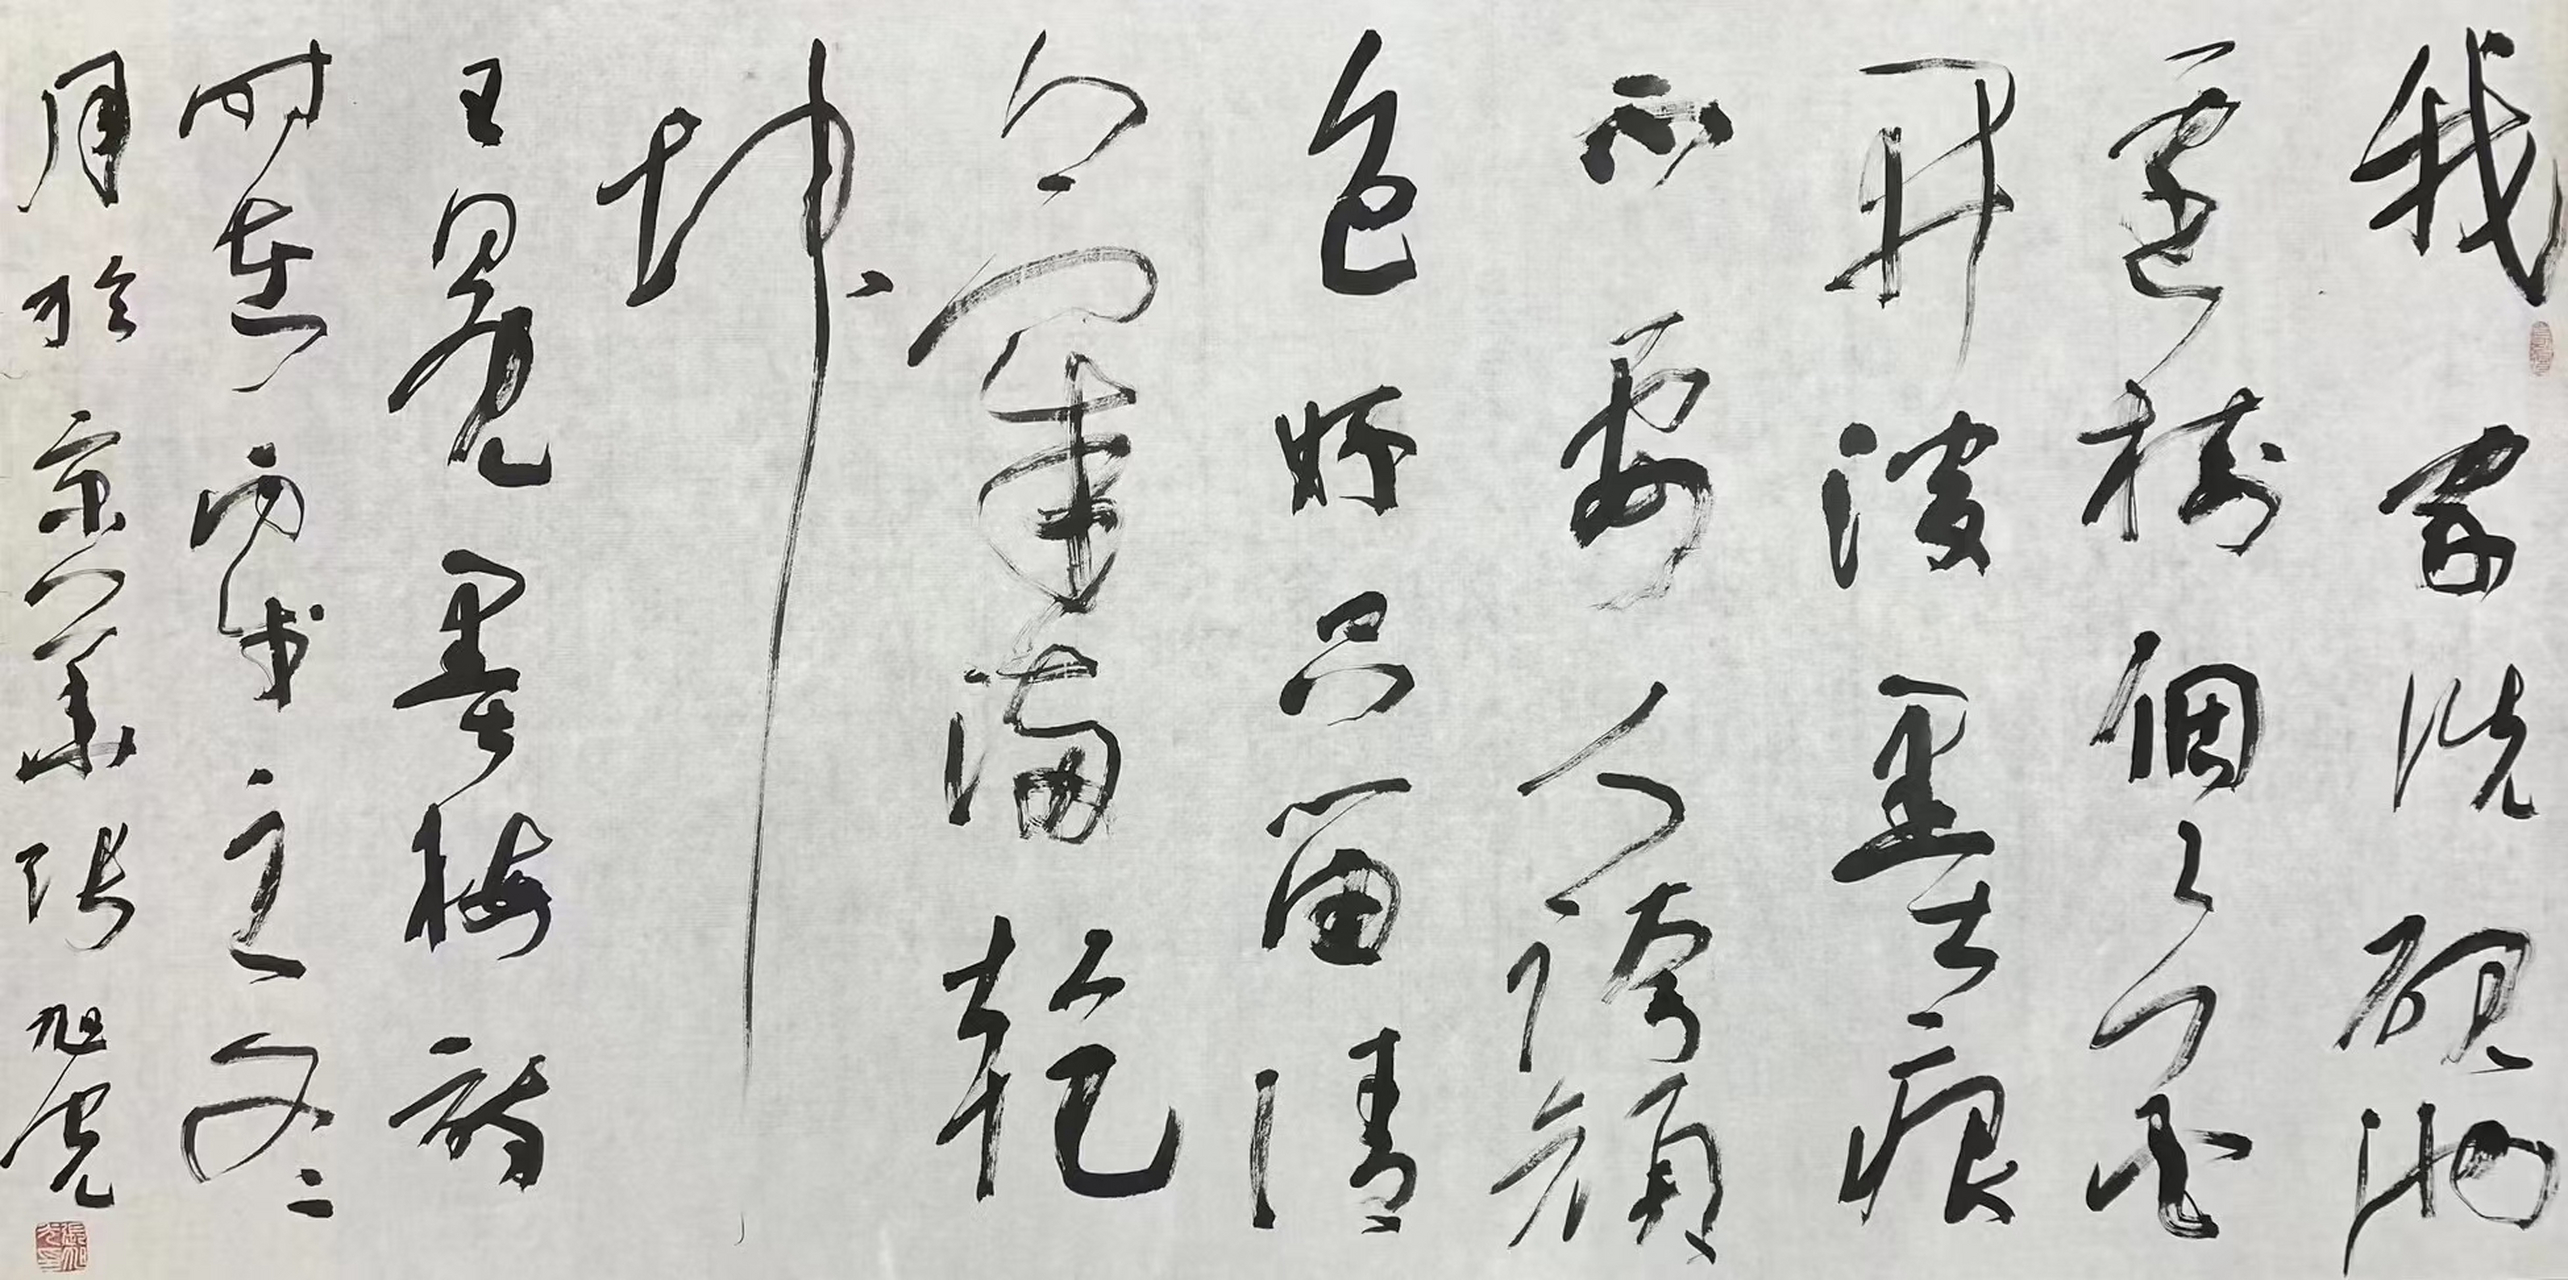 我家洗硯池
邊樹個々花
開淡墨痕
不要人誇顏
色好只留清
氣滿乾
坤
王冕墨梅詩
時在丙戌之冬
月於京華張旭光